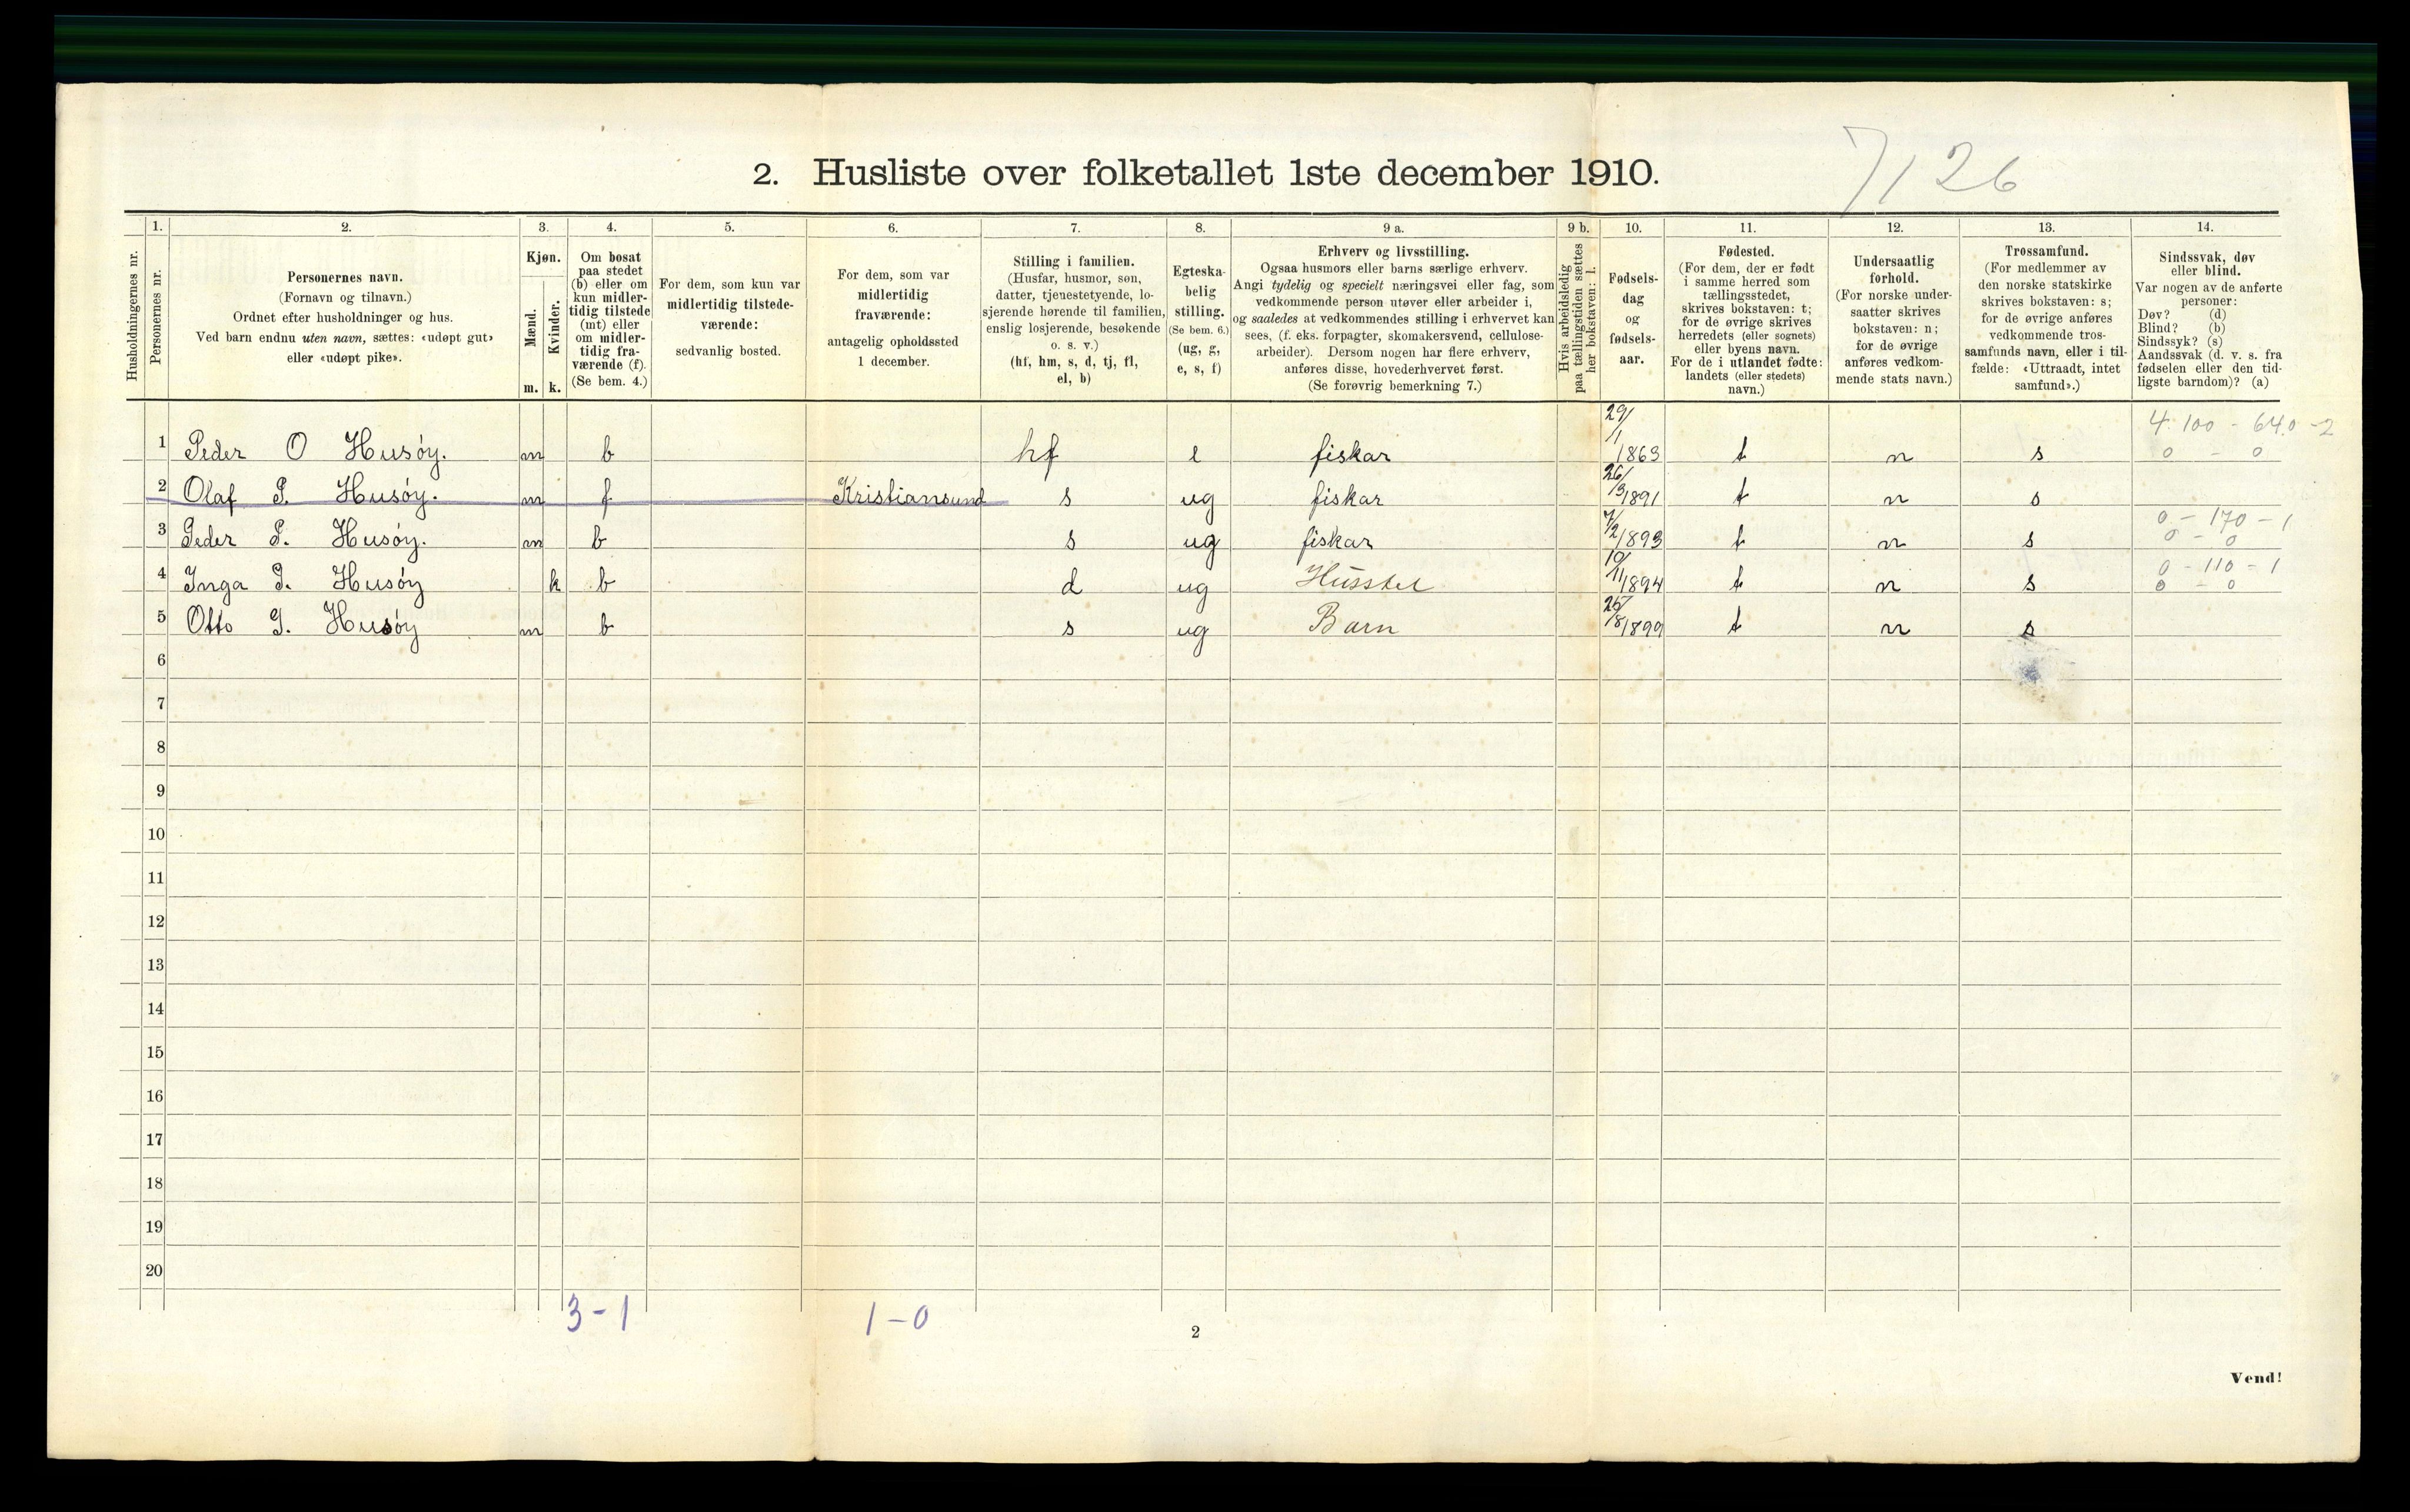 2. Husliste over folketallet 1ste december 1910.
7/126
Husholdningernes nr.
1.
Personernes nr.
2.
Personernes navn.
(Fornavn og tilnavn.)
Ordnet efter husholdninger og hus.
Ved barn endnu uten navn, sættes: «udøpt gut»
eller «udøpt pike».
3.
Kjøn.
Mænd.
m.
Kvinder.
k.
4.
Om bosat
paa stedet
(b) eller om
kun midler-
tidig tilstede
(mt) eller
om midler-
tidig fra-
værende (f).
(Se bem. 4.)
5.
For dem, som kun var
midlertidig tilstede-
værende:
sedvanlig bosted.
6.
For dem, som var
midlertidig
fraværende:
antagelig opholdssted
1 december.
7.
Stilling i familien.
(Husfar, husmor, søn,
datter, tjenestetyende, lo-
sjerende hørende til familien,
enslig losjerende, besøkende
o. s. v.)
(hf, hm, s, d, tj, fl,
el, b)
8.
Egteska-
belig
stilling.
(Se bem. 6.)
(ug, g,
e, s, f)
9 a.
Erhverv og livsstilling.
Ogsaa husmors eller barns særlige erhverv.
Angi tydelig og specielt næringsvei eller fag, som
vedkommende person utøver eller arbeider i,
og saaledes at vedkommendes stilling i erhvervet kan
sees, (f. eks. forpagter, skomakersvend, cellulose-
arbeider). Dersom nogen har flere erhverv,
anføres disse, hovederhvervet først.
(Se forøvrig bemerkning 7.)
9 b.
Hvis arbeidsledig
paa tællingstiden sættes
her bokstaven: l.
10.
Fødsels-
dag
og
fødsels-
aar.
11.
Fødested.
(For dem, der er født
i samme herred som
tællingsstedet,
skrives bokstaven: t;
for de øvrige skrives
herredets (eller sognets)
eller byens navn.
For de i utlandet fødte:
landets (eller stedets)
navn.)
12.
Undersaatlig
forhold.
(For norske under-
saatter skrives
bokstaven: n;
for de øvrige
anføres vedkom-
mende stats navn.)
13.
Trossamfund.
(For medlemmer av
den norske statskirke
skrives bokstaven: s;
for de øvrige anføres
vedkommende tros-
samfunds navn, eller i til-
fælde: «Uttraadt, intet
samfund».)
14.
Sindssvak, døv
eller blind.
Var nogen av de anførte
personer:
Døv? (d)
Blind? (b)
Sindssyk? (s)
Aandssvak (d. v. s. fra
fødselen eller den tid-
ligste barndom)? (a)
4.100 - 640 - 2
1 Peder O Husøy. m b hf e fiskar 29/1 1863 t n s 0 - 0
2 Olaf P. Husøy. m f Kristiansund s ug fiskar 26/3 1891 t n s
0 - 170 - 1
3 Peder P. Husøy. m b s ug fiskar 7/2 1893 t n s 0 - 0
0 - 110 - 1
4 Inga P. Husøy k b d ug Husstel 10/11 1894 t n s 0 - 0
5 Otto P. Husøy m b s ug Barn 25/8 1899 t n s
6
7
8
9
10
11
12
13
14
15
16
17
18
19
20
3-1 1-0
2
Vend!